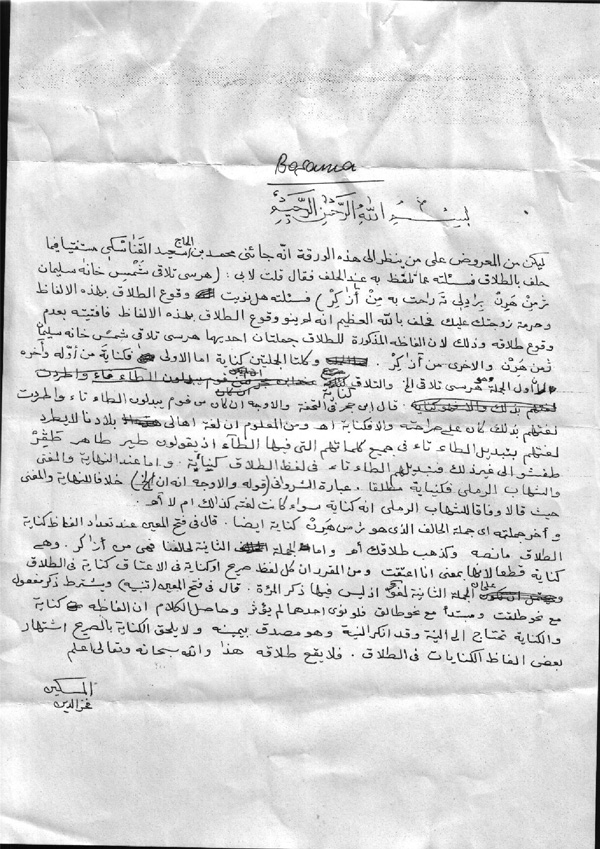 Başarma
بسم الله الرحمن الرحيم
ليكن من المعروض على من ينظر الى هذه الورقة انه جائنى محمد بن الحاج سعيد القناسكى مستفتيا فيما
حلف بالطلاق فسئلته عما تلفظ به عند الحلف فقال قلت لابى : ( هرسى تلاقى شمس خانه سليمان
ژمن هرن برادلى ته راحت به من آزاكر ) فسئلته هل نويت وقوع الطلاق بهذه الالفاظ
وحرمة زوجتك عليك فحلف بالله العظيم انه لم ينو وقوع الطلاق بهذه الالفاظ فافتيته بعدم
وقوع طلاقه وذلك لان الفاظه المذكورة للطلاق جملتان احديها هرسى تلاقى شمس خانه سليمان
ژمن هرن والاخرى من آزاكر . وكلتا الجملتين كناية اما الاولى فكناية من اوله وآخره
اما اول الجملة وهو هرسى تلاقى الخ والتلاق كناية
قال ابن حجر فى التحفة والاوجه ان كان من قوم يبدلون الطاء تاء واطردت
لغتهم بذلك كان على صراحته والا فكناية اهـ ومن المعلوم ان لغة اهالى بلادنا لا يطرد
لغتهم بتبديل الطاء تاء فى جميع كلماتهم التى فيها الطاء اذ يقولون طير طاهر
طفشو الى غير ذلك فتبديلهم الطاء تاء فى لفظ الطلاق كناية . واما عند النهاية والمغنى
والشهاب الرملى فكناية مطلقا . عبارة الشروانى ( قوله والاوجه انه ان الخ ) خلافا للنهاية والمغنى
حيث قالا وفاقا للشهاب الرملى انه كناية سواء كانت لغته كذلك ام لا اهـ
وآخر جملته اى جملة الحالف الذى هو ژمن هرن كناية ايضا . قال فى فتح المعين عند تعداد الفاظ كناية
الطلاق مانصه وكذهب طلاقك اهـ واما الجملة الثانية لحالفنا فهى من آزاكر . وهى
كناية قطعا لانها بمعنى انا اعتقت ومن المقرر ان كل لفظ صريح او كناية فى الاعتاق كناية فى الطلاق
على ان الجملة الثانية لغو اذ ليس فيها ذكر المرأة . قال فى فتح المعين ( تنبيه ) ويشترط ذكر مفعوله
مع نحو طلقت ومبتدأ مع نحو طالق فلو نوى احدهما لم يؤثر وحاصل الكلام ان الفاظه كناية
والكناية تحتاج الى النية وقد انكر النية وهو مصدق بيمينه ولا يلحق الكناية بالصريح اشتهار
بعض الفاظ الكنايات فى الطلاق . فلا يقع طلاقه هذا والله سبحانه وتعالى اعلم
المسكين
فخرالدين